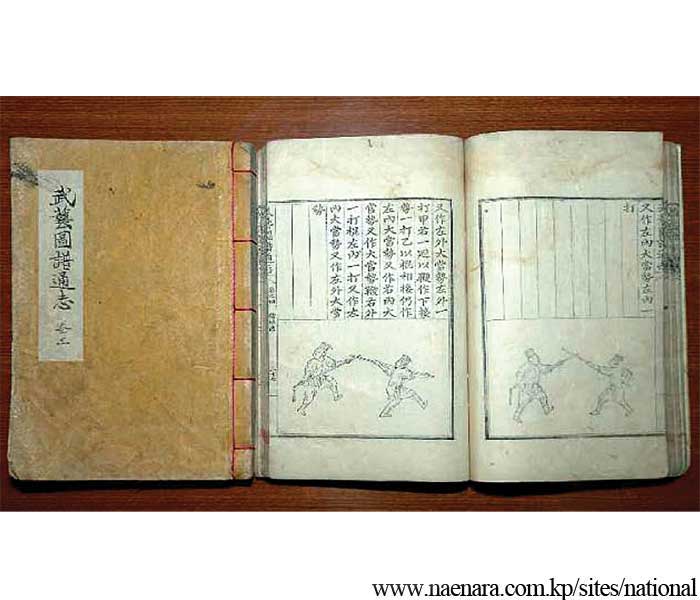 武藝圖譜通志
又作左內大當勢左內一
打
又作左外大當勢左外一
打甲 以觀作下接
勢一打乙以棍相接仍作
左內大當勢又作右內大
當勢又作大當勢鞭右外
一打棍左內一打又作左
內大當勢又作左外大當
勢
www.naenara.com.kp/sites/national